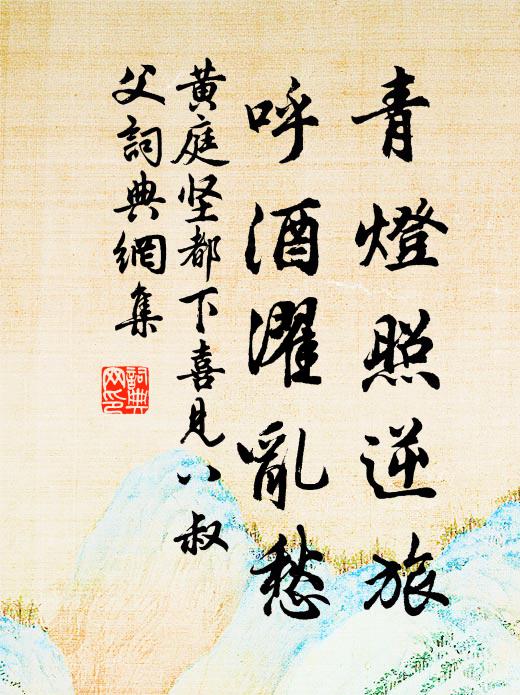 青燈照逆旅
呼酒濯亂愁
黄庭坚都下喜見八叔
父詞典網集
詞典
网印